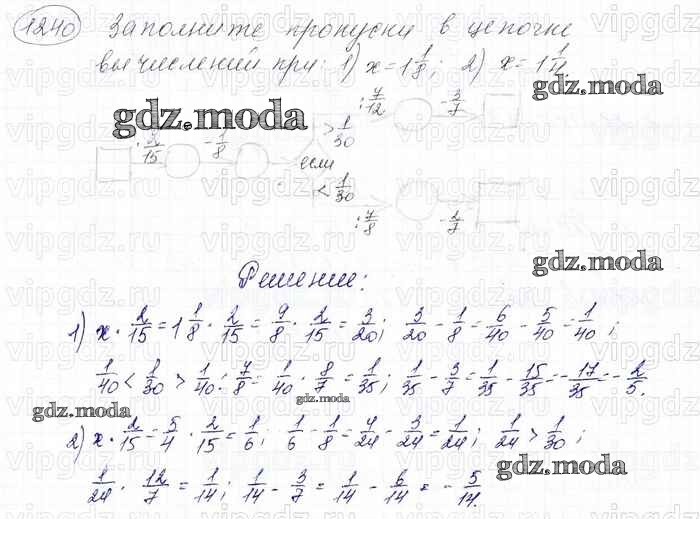 1240 Заполните пропуски в цепочке
вычислений при: 1) x = 1 1/8; 2) x = 1 1/4
gdz.moda
: 7/12 - 3/7
> 1/30
· 2/15 - 1/8 если
< 1/30
: 7/8 - 2/7
gdz.moda
Решение:
1) x · 2/15 = 1 1/8 · 2/15 = 9/8 · 2/15 = 3/20; 3/20 - 1/8 = 6/40 - 5/40 = 1/40;
1/40 < 1/30 > 1/40 : 7/8 = 1/40 · 8/7 = 1/35; 1/35 - 3/7 = 1/35 - 15/35 = - 17/35 = - 2/5.
gdz.moda
gdz.moda
2) x · 2/15 = 5/4 · 2/15 = 1/6; 1/6 - 1/8 = 4/24 - 3/24 = 1/24; 1/24 > 1/30;
gdz.moda
1/24 · 12/7 = 1/14; 1/14 - 3/7 = 1/14 - 6/14 = - 5/14.